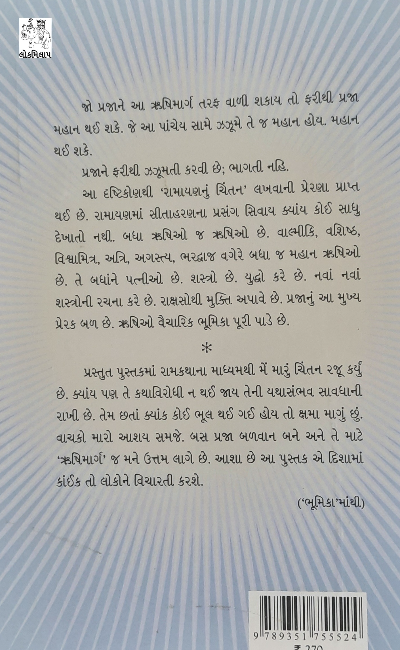 લોકમિલાપ
જો પ્રજાને આ ઋષિમાર્ગ તરફ વાળી શકાય તો ફરીથી પ્રજા
મહાન થઈ શકે. જે આ પાંચેય સામે ઝઝૂમે તે જ મહાન હોય. મહાન
થઈ શકે.
પ્રજાને ફરીથી ઝઝૂમતી કરવી છે; ભાગતી નહિ.
આ દૃષ્ટિકોણથી ‘રામાયણનું ચિંતન’ લખવાની પ્રેરણા પ્રાપ્ત
થઈ છે. રામાયણમાં સીતાહરણના પ્રસંગ સિવાય ક્યાંય કોઈ સાધુ
દેખાતો નથી. બધા ઋષિઓ જ ઋષિઓ છે. વાલ્મીકિ, વશિષ્ઠ,
વિશ્વામિત્ર, અત્રિ, અગસ્ત્ય, ભરદ્વાજ વગેરે બધા જ મહાન ઋષિઓ
છે. તે બધાંને પત્નીઓ છે. શસ્ત્રો છે. યુદ્ધો કરે છે. નવાં નવાં
શસ્ત્રોની રચના કરે છે. રાક્ષસોથી મુક્તિ અપાવે છે. પ્રજાનું આ મુખ્ય
પ્રેરક બળ છે. ઋષિઓ વૈચારિક ભૂમિકા પૂરી પાડે છે.
*
પ્રસ્તુત પુસ્તકમાં રામકથાના માધ્યમથી મેં મારું ચિંતન રજૂ કર્યું
છે. ક્યાંય પણ તે કથાવિરોધી ન થઈ જાય તેની યથાસંભવ સાવધાની
રાખી છે. તેમ છતાં ક્યાંક કોઈ ભૂલ થઈ ગઈ હોય તો ક્ષમા માગું છું.
વાચકો મારો આશય સમજે. બસ પ્રજા બળવાન બને અને તે માટે
‘ઋષિમાર્ગ’ જ મને ઉત્તમ લાગે છે. આશા છે આ પુસ્તક એ દિશામાં
કાંઈક તો લોકોને વિચારતી કરશે.
(‘ભૂમિકા’માંથી)
9 789351 755524
₹ 270